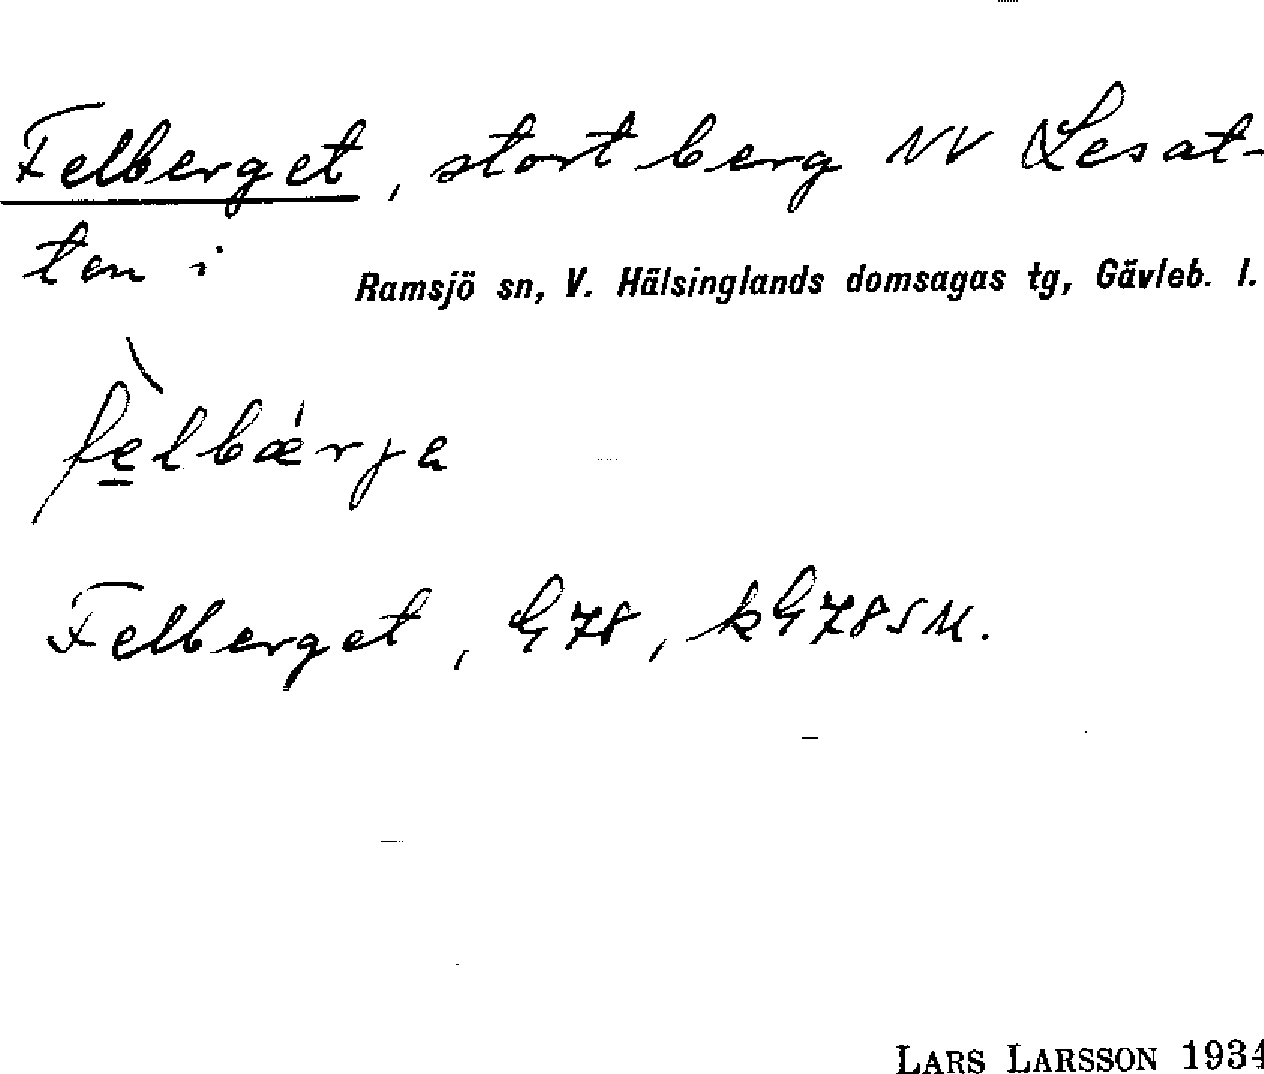 Felberget, stort berg NV Lesat-
ten i
Ramsjö sn, V. Hälsinglands domsagas tg, Gävleb. l.
fe̱lbǽrja
Felberget, G78, kG78SM.
LARS LARSSON 1934